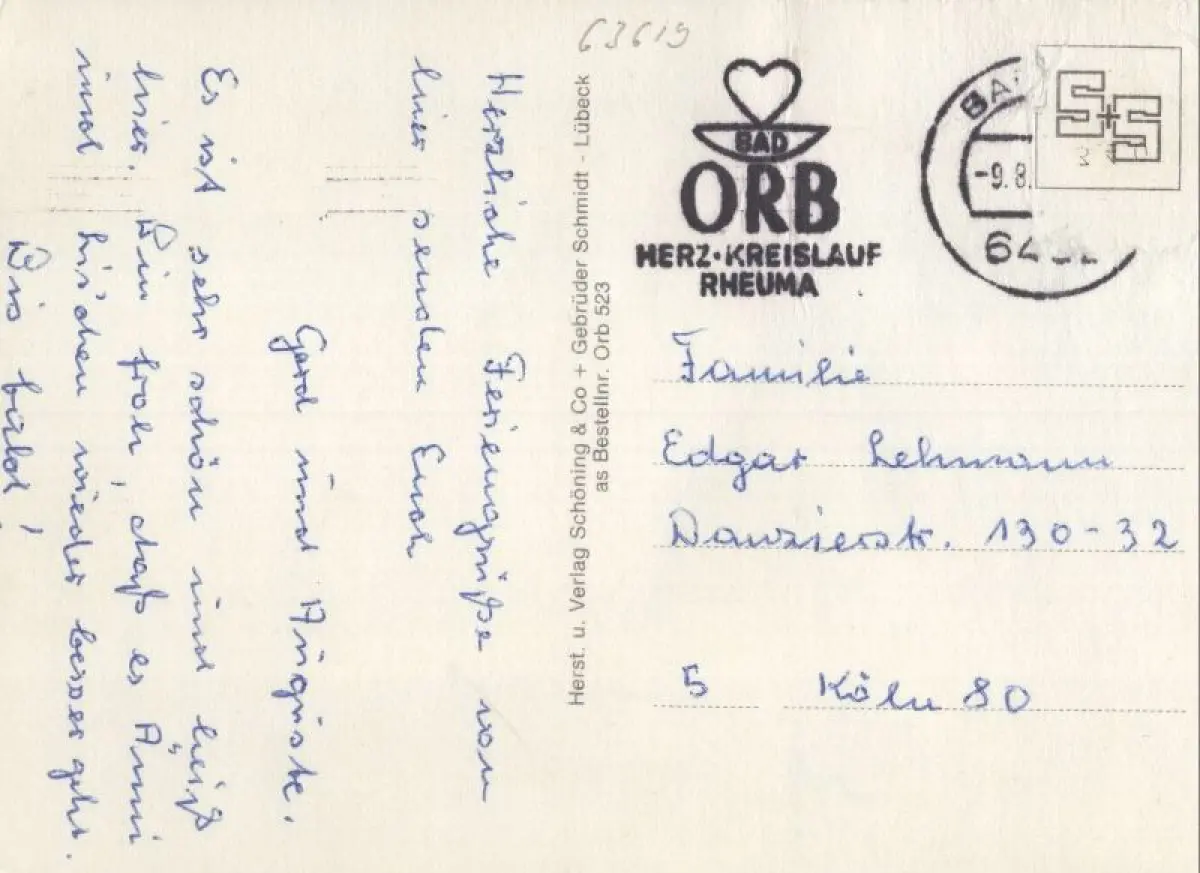 63619
Herzliche Feriengrüße von
hier senden Euch
Gerd und Auguste.
Es ist sehr schön und heiß
hier. Bin froh, daß es Anni
und wieder besser geht.
Bis bald!
Herst. u. Verlag Schöning & Co + Gebrüder Schmidt - Lübeck
as Bestellnr. Orb 523
BAD
ORB
HERZ·KREISLAUF
RHEUMA
BA
-9.8.
64
S+S
Familie
Edgar Lehmann
Danzierstr. 130-32
5 Köln 80